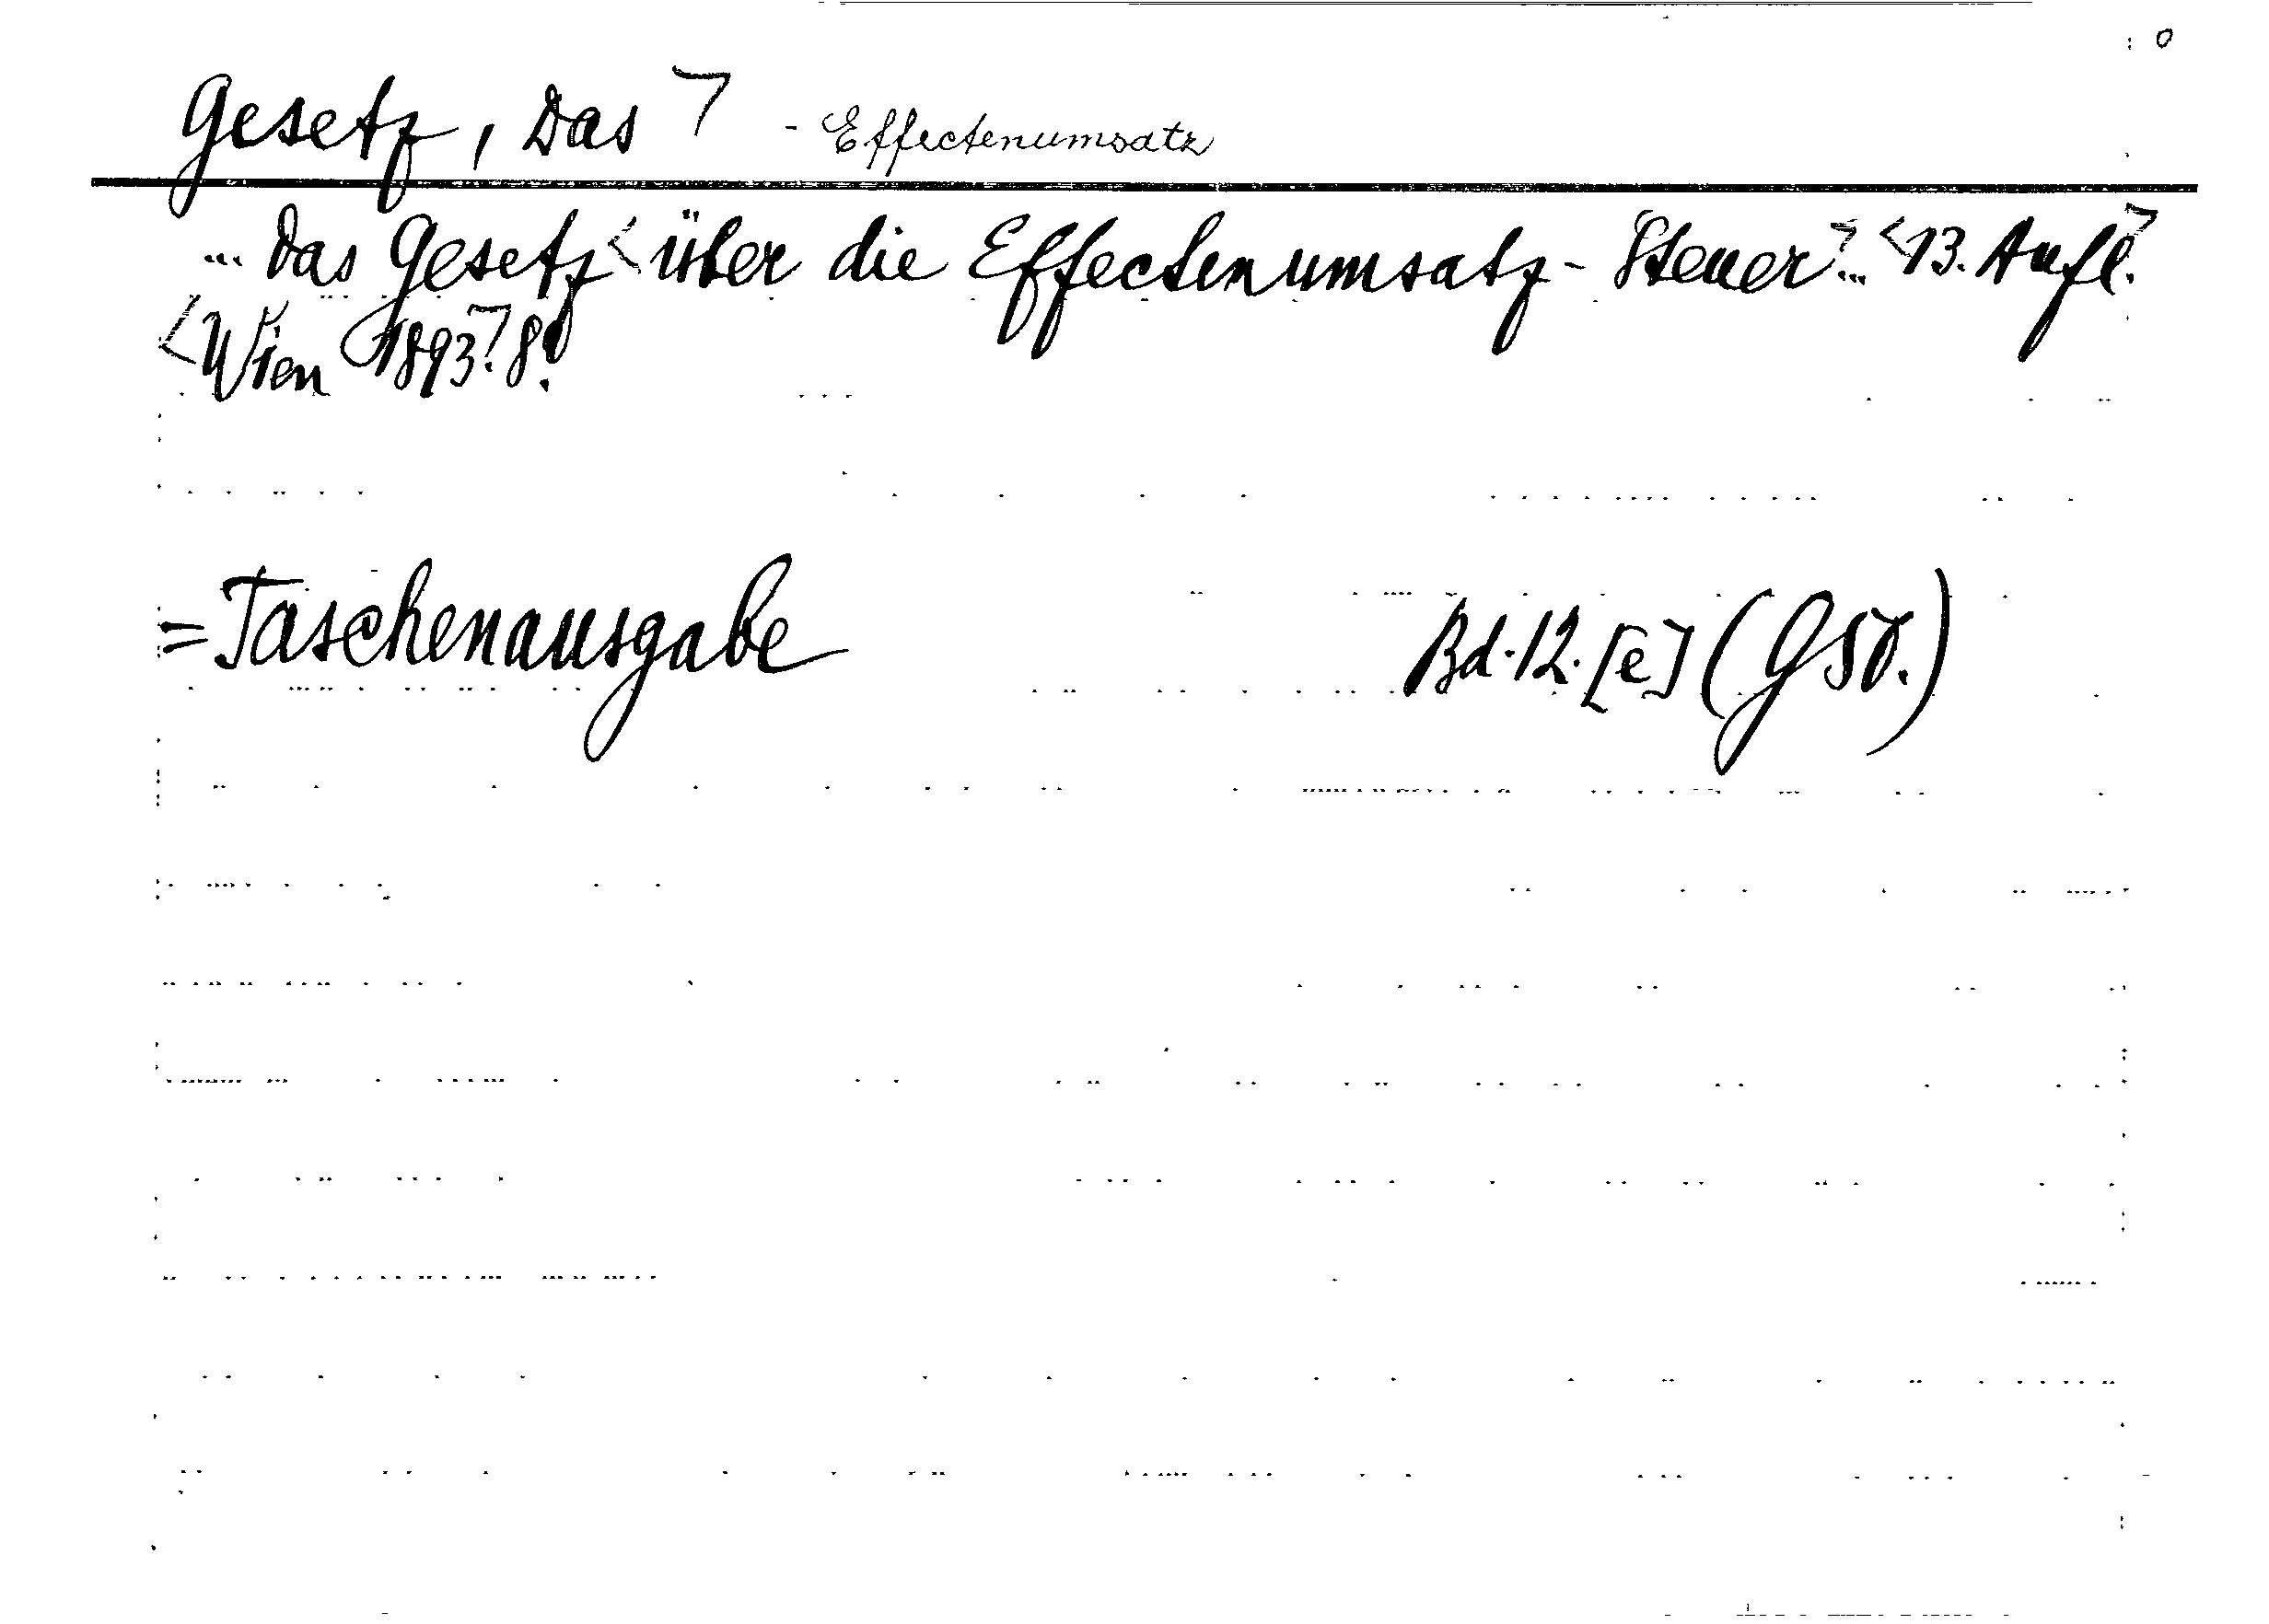 Gesetz, Das> - Effectenumsatz
... Das Gesetz <über die Effectenumsatz-Steuer>... <13. Aufl.>
<Wien 1893.> 8°.
= Taschenausgabe Bd. 12. [e] (G50.)